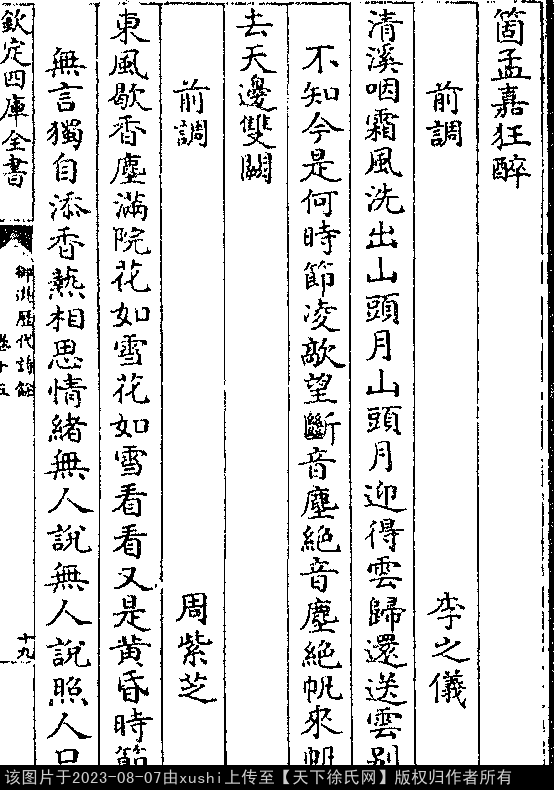 箇孟嘉狂醉
前調 李之儀
清溪咽霜風洗出山頭月山頭月迎得雲歸還送雲別
不知今是何時節凌歊望斷音塵絕音塵絕帆來帆
去天邊雙闕
前調 周紫芝
東風歇香塵滿院花如雪花如雪看看又是黃昏時節
無言獨自添香熱相思情緒無人說無人說照人只
欽定四庫全書
御選歷代詩餘
卷十五
十九
该图片于2023-08-07由xushi上传至【天下徐氏网】版权归作者所有